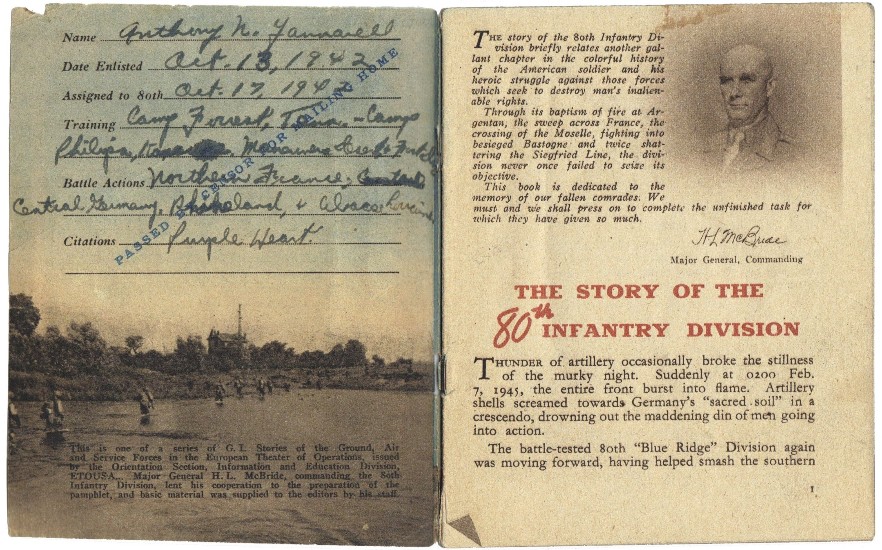 Name Anthony N. Yannarell
Date Enlisted Oct. 13, 1942
Assigned to 80th Oct. 17, 1942
Training Camp Forrest, Tenn. - Camp
Philips, Maneuvers
Battle Actions Northern France,
Central Germany, Rhineland, & Alsace Lorraine
Citations Purple Heart.
PASSED BY CENSOR FOR MAILING HOME
This is one of a series of G.I. Stories of the Ground, Air
and Service Forces in the European Theater of Operations, issued
by the Orientation Section, Information and Education Division,
ETOUSA... Major General H. L. McBride, commanding the 80th
Infantry Division, lent his cooperation to the preparation of the
pamphlet, and basic material was supplied to the editors by his staff.
THE story of the 80th Infantry Di-
vision briefly relates another gal-
lant chapter in the colorful history
of the American soldier and his
heroic struggle against those forces
which seek to destroy man's inalien-
able rights.
Through its baptism of fire at Ar-
gentan, the sweep across France, the
crossing of the Moselle, fighting into
besieged Bastogne and twice shat-
tering the Siegfried Line, the divi-
sion never once failed to seize its
objective.
This book is dedicated to the
memory of our fallen comrades. We
must and we shall press on to complete the unfinished task for
which they have given so much.
H L McBride
Major General, Commanding
THE STORY OF THE
80th INFANTRY DIVISION
THUNDER of artillery occasionally broke the stillness
of the murky night. Suddenly at 0200 Feb.
7, 1945, the entire front burst into flame. Artillery
shells screamed towards Germany's "sacred soil" in a
crescendo, drowning out the maddening din of men going
into action.
The battle-tested 80th "Blue Ridge" Division again
was moving forward, having helped smash the southern
1